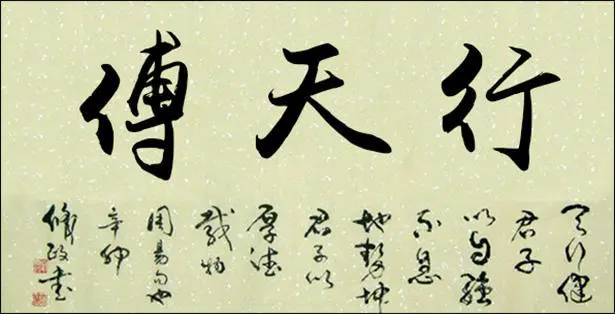 行天傅
天行健
君子
以自強
不息
地勢坤
君子以
厚德
載物
周易句也
辛卯
政書